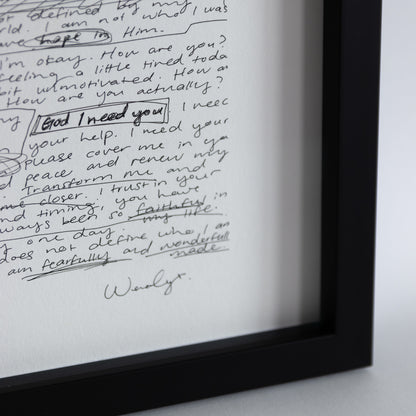 or defined by my
rld. I am not who I was
ave hope in Him.
I'm okay. How are you?
feeling a little tired toda
bit unmotivated. How a
How are you actually?
my God I need you I need
your help. I need your
please cover me in yo
d peace and renew my
Transform me and
me closer. I trust in your
nd timing, you have
ways been so faithful in
y one day. my life.
does not define who I am
am fearfully and wonderfull
made.